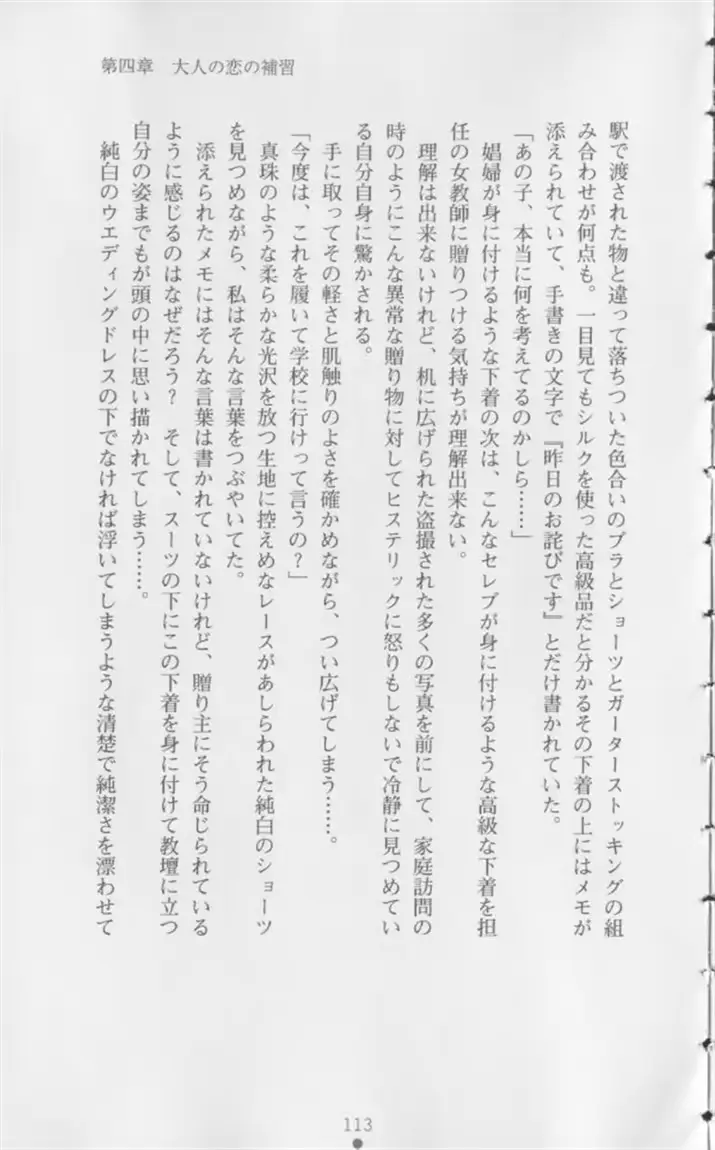 第四章　大人の恋の補習
駅で渡された物と違って落ちついた色合いのブラとショーツとガーターストッキングの組
み合わせが何点も。一目見てもシルクを使った高級品だと分かるその下着の上にはメモが
添えられていて、手書きの文字で『昨日のお詫びです』とだけ書かれていた。
「あの子、本当に何を考えてるのかしら……」
　娼婦が身に付けるような下着の次は、こんなセレブが身に付けるような高級な下着を担
任の女教師に贈りつける気持ちが理解出来ない。
　理解は出来ないけれど、机に広げられた盗撮された多くの写真を前にして、家庭訪問の
時のようにこんな異常な贈り物に対してヒステリックに怒りもしないで冷静に見つめてい
る自分自身に驚かされる。
　手に取ってその軽さと肌触りのよさを確かめながら、つい広げてしまう……。
「今度は、これを履いて学校に行けって言うの？」
　真珠のような柔らかな光沢を放つ生地に控えめなレースがあしらわれた純白のショーツ
を見つめながら、私はそんな言葉をつぶやいてた。
　添えられたメモにはそんな言葉は書かれていないけれど、贈り主にそう命じられている
ように感じるのはなぜだろう？　そして、スーツの下にこの下着を身に付けて教壇に立つ
自分の姿までもが頭の中に思い描かれてしまう……。
　純白のウエディングドレスの下でなければ浮いてしまうような清楚で純潔さを漂わせて
113